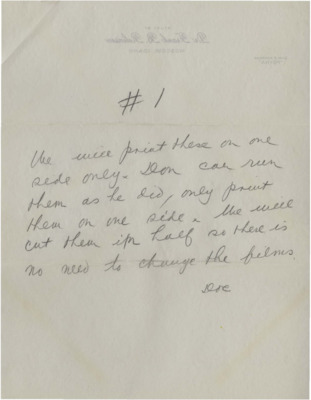 # 1
We will print these on one
side only. Don can run
them as he did, only print
them on one side. We will
cut them in half so there is
no need to change the films.
Doc